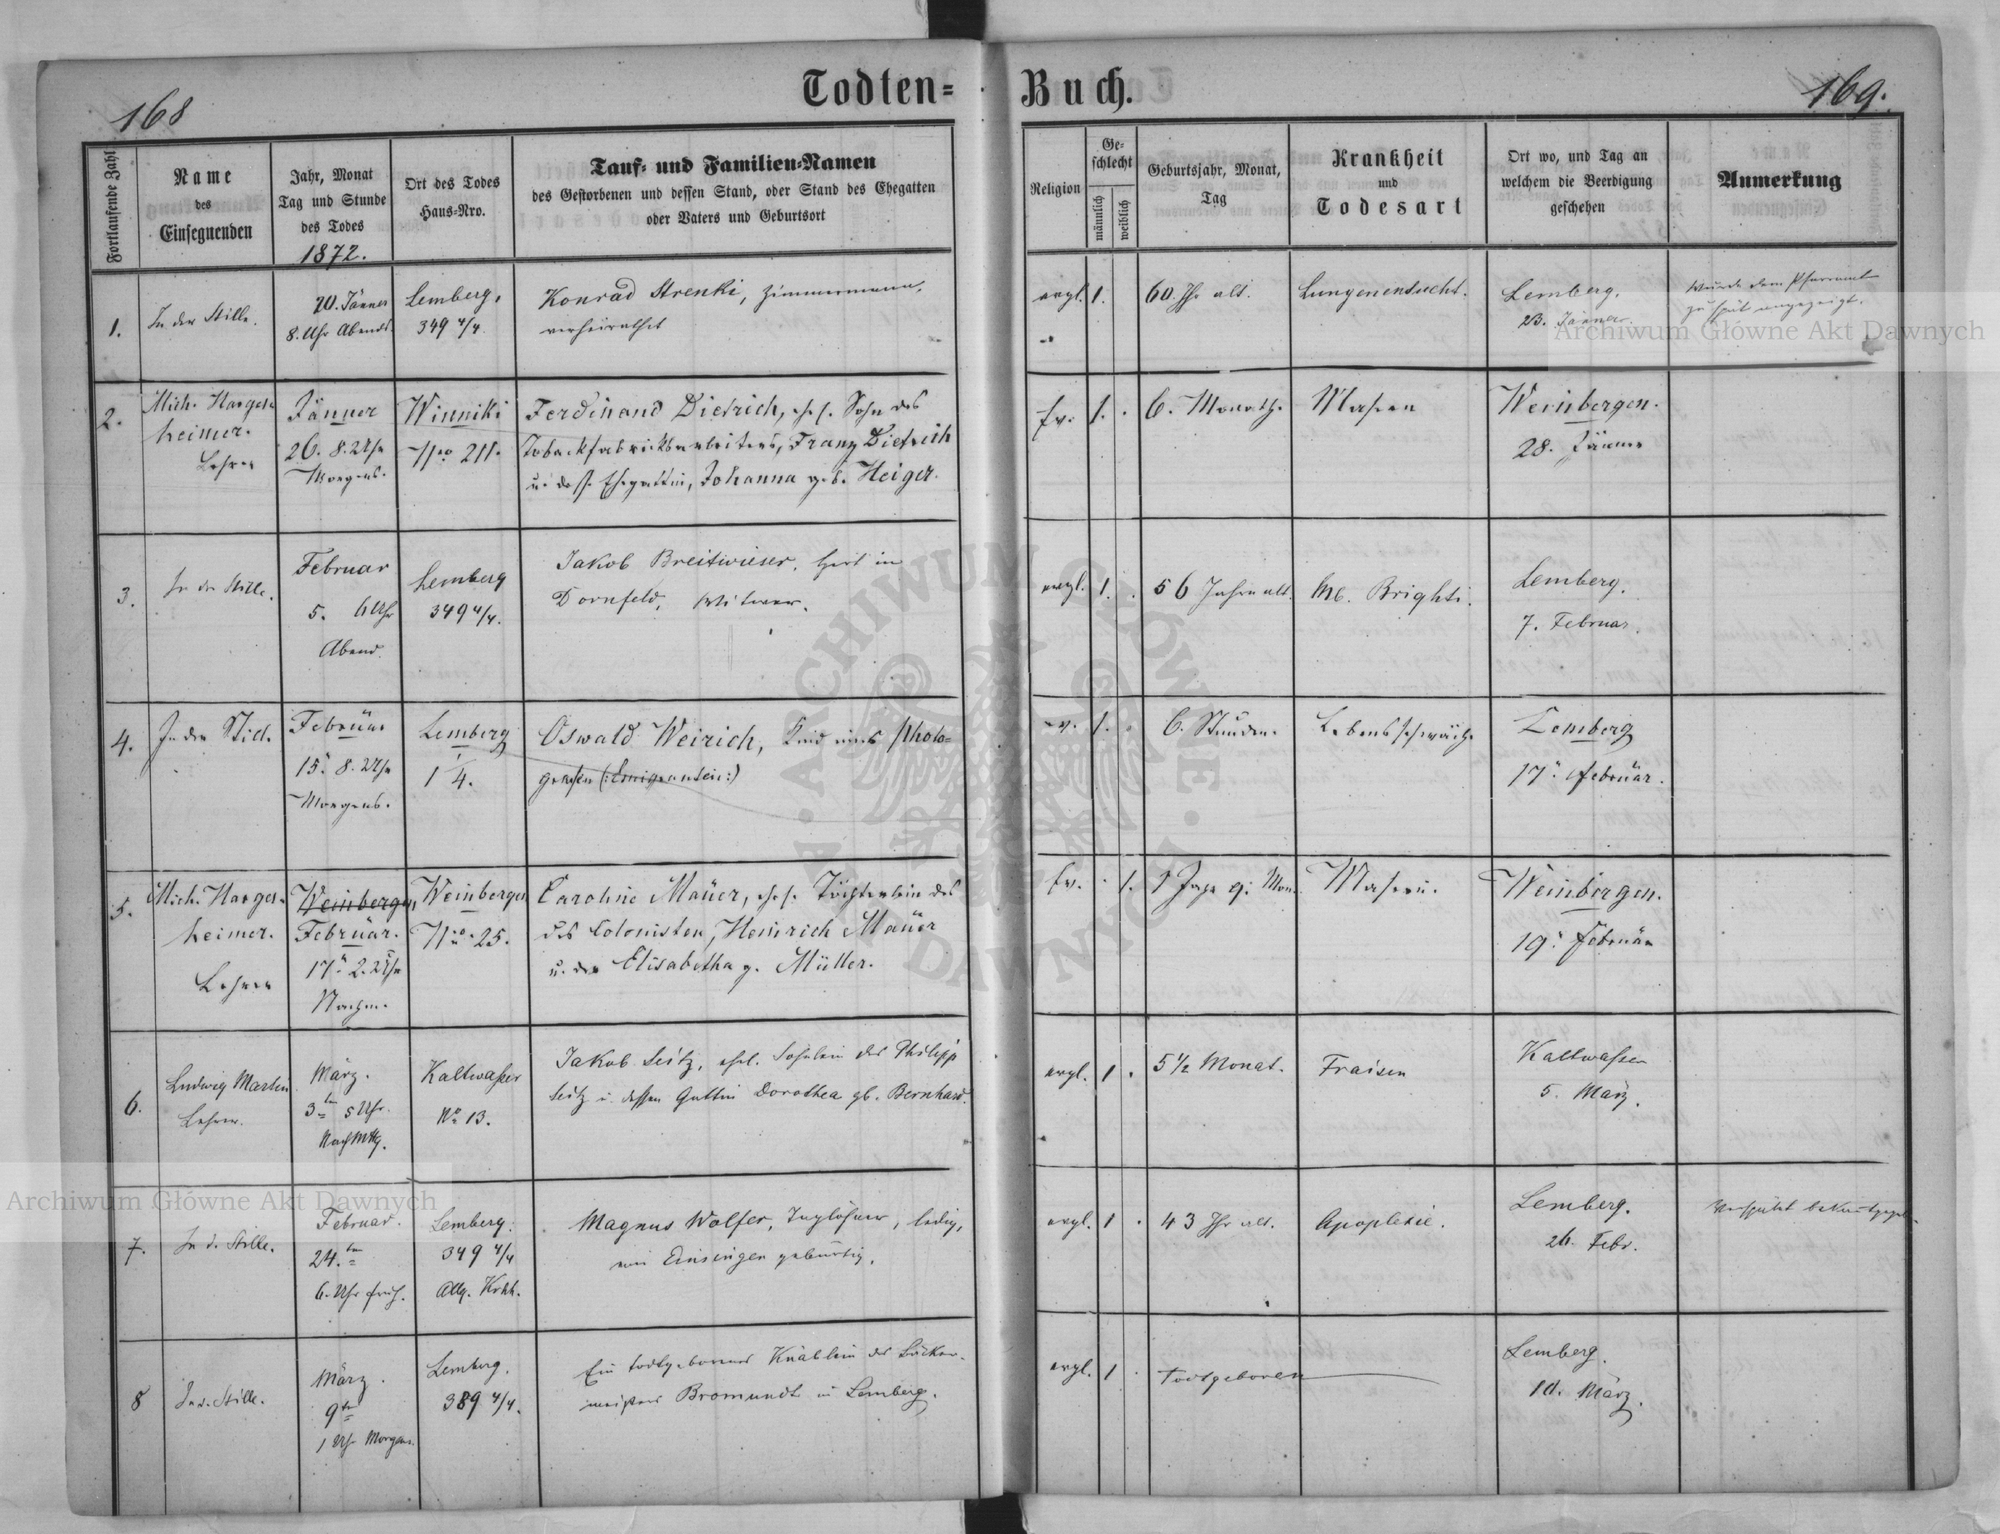 168
Todten-
Buch.
169.
Fortlaufende Zahl
Name
des
Einsegnenden
Jahr, Monat
Tag und Stunde
des Todes
1872.
Ort des Todes
Haus-Nro.
Tauf- und Familien-Namen
des Gestorbenen und dessen Stand, oder Stand des Ehegatten
oder Vaters und Geburtsort
Religion
Ge-
schlecht
männlich
weiblich
Geburtsjahr, Monat,
Tag
Krankheit
und
Todesart
Ort wo, und Tag an
welchem die Beerdigung
geschehen
Anmerkung
1.
In der Stille.
20. Jänner
8. Uhr Abends.
Lemberg,
349 4/4.
Konrad Strenki, Zimmermann,
verheirathet
evgl.
1.
60 Jhr alt.
Lungensucht.
Lemberg.
23. Jänner.
Wurde dem Pfarramt
zu spät angezeigt.
2.
Mich. Harges-
heimer.
Lehrer
Jänner
26. 8. Uhr
Morgens.
Winniki
Nro 211.
Ferdinand Dietrich, ehel. Sohn des
Tobackfabricksarbeiters, Franz Dietrich
u. dess. Ehegattin, Johanna geb. Heiger.
Ev.
1.
6. Monath.
Masern
Weinbergen.
28. Jänner
3.
In der Stille.
Februar
5. 6 Uhr
Abend.
Lemberg
349 4/4.
Jakob Breitwieser, Hirt in
Dornfeld, Witwer.
evgl.
1.
56 Jahre alt.
Mb. Brighti.
Lemberg.
7. Februar.
4.
In der Still.
Februar
15. 8. Uhr
Morgens.
Lemberg
1 4.
Oswald Weirich, Kind eines Photo-
grafen (:Emigranten:)
ev.
1.
6. Stunden.
Lebensschwäche
Lemberg
17. Februar.
5.
Mich. Harges-
heimer.
Lehrer
Weinbergen
Februar.
17. 2. Uhr
Nachm.
Weinbergen
Nro. 25.
Caroline Mauer, ehel. Töchterlein des
des Colonisten, Heinrich Mauer
u. der Elisabetha g. Müller.
Ev.
1.
1 Jahr 9. Mon.
Masern.
Weinbergen.
19. Februar
6.
Ludwig Marten
Lehrer.
März.
3ten 5 Uhr.
NachMttg.
Kaltwasser
No 13.
Jakob Seitz, ehel. Söhnlein des Philipp
Seitz u. dessen Gattin Dorothea gb. Bernhard.
evgl.
1.
5 1/2 Monat.
Fraisen
Kaltwasser
5. März.
7.
In d. Stille.
Februar.
24.ten
6. Uhr früh.
Lemberg.
349 4/4
Allg. Krkh.
Magnus Wolfer, Taglöhner, ledig,
von Einsingen gebürtig.
evgl.
1.
43 Jhr alt.
Apoplexie.
Lemberg.
26. Febr.
Verspätet
8
In d. Stille.
März.
9ten
1 Uhr Morgens.
Lemberg.
389 4/4.
Ein todtgebornes Knäblein des Bäcker-
meisters Bromundt in Lemberg.
evgl.
1.
Todtgeboren
Lemberg.
10. März.
Archiwum Główne Akt Dawnych
Archiwum Główne Akt Dawnych
ARCHIWUM GŁÓWNE AKT DAWNYCH